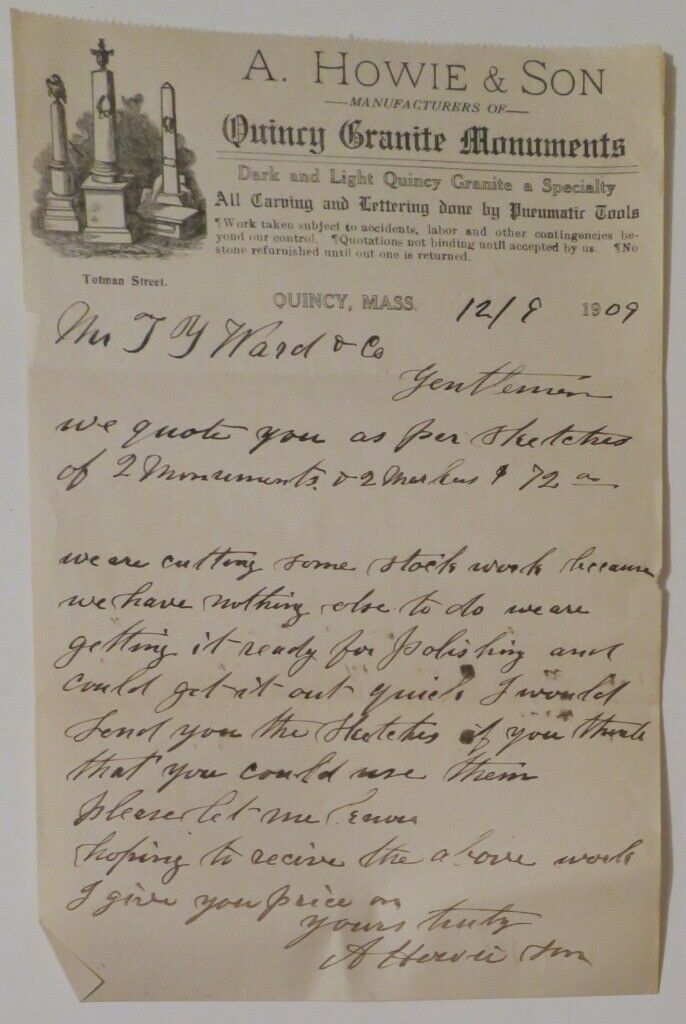 A. HOWIE & SON
—MANUFACTURERS OF—
Quincy Granite Monuments
Dark and Light Quincy Granite a Specialty
All Carving and Lettering done by Pneumatic Tools
¶Work taken subject to accidents, labor and other contingencies be-
yond our control. ¶Quotations not binding until accepted by us. ¶No
stone refurnished until out one is returned.
Totman Street.
QUINCY, MASS. 12/9 1909
Mr T Y Ward & Co
Gentlemen
we quote you as per sketches
of 2 Monuments. & 2 Markers $ 72 00
we are cutting some stock work because
we have nothing else to do we are
getting it ready for polishing and
could get it out quick I would
send you the sketches if you think
that you could use them
please let me know
hoping to recive the above work
I give you price on
yours truly
A Howie Son